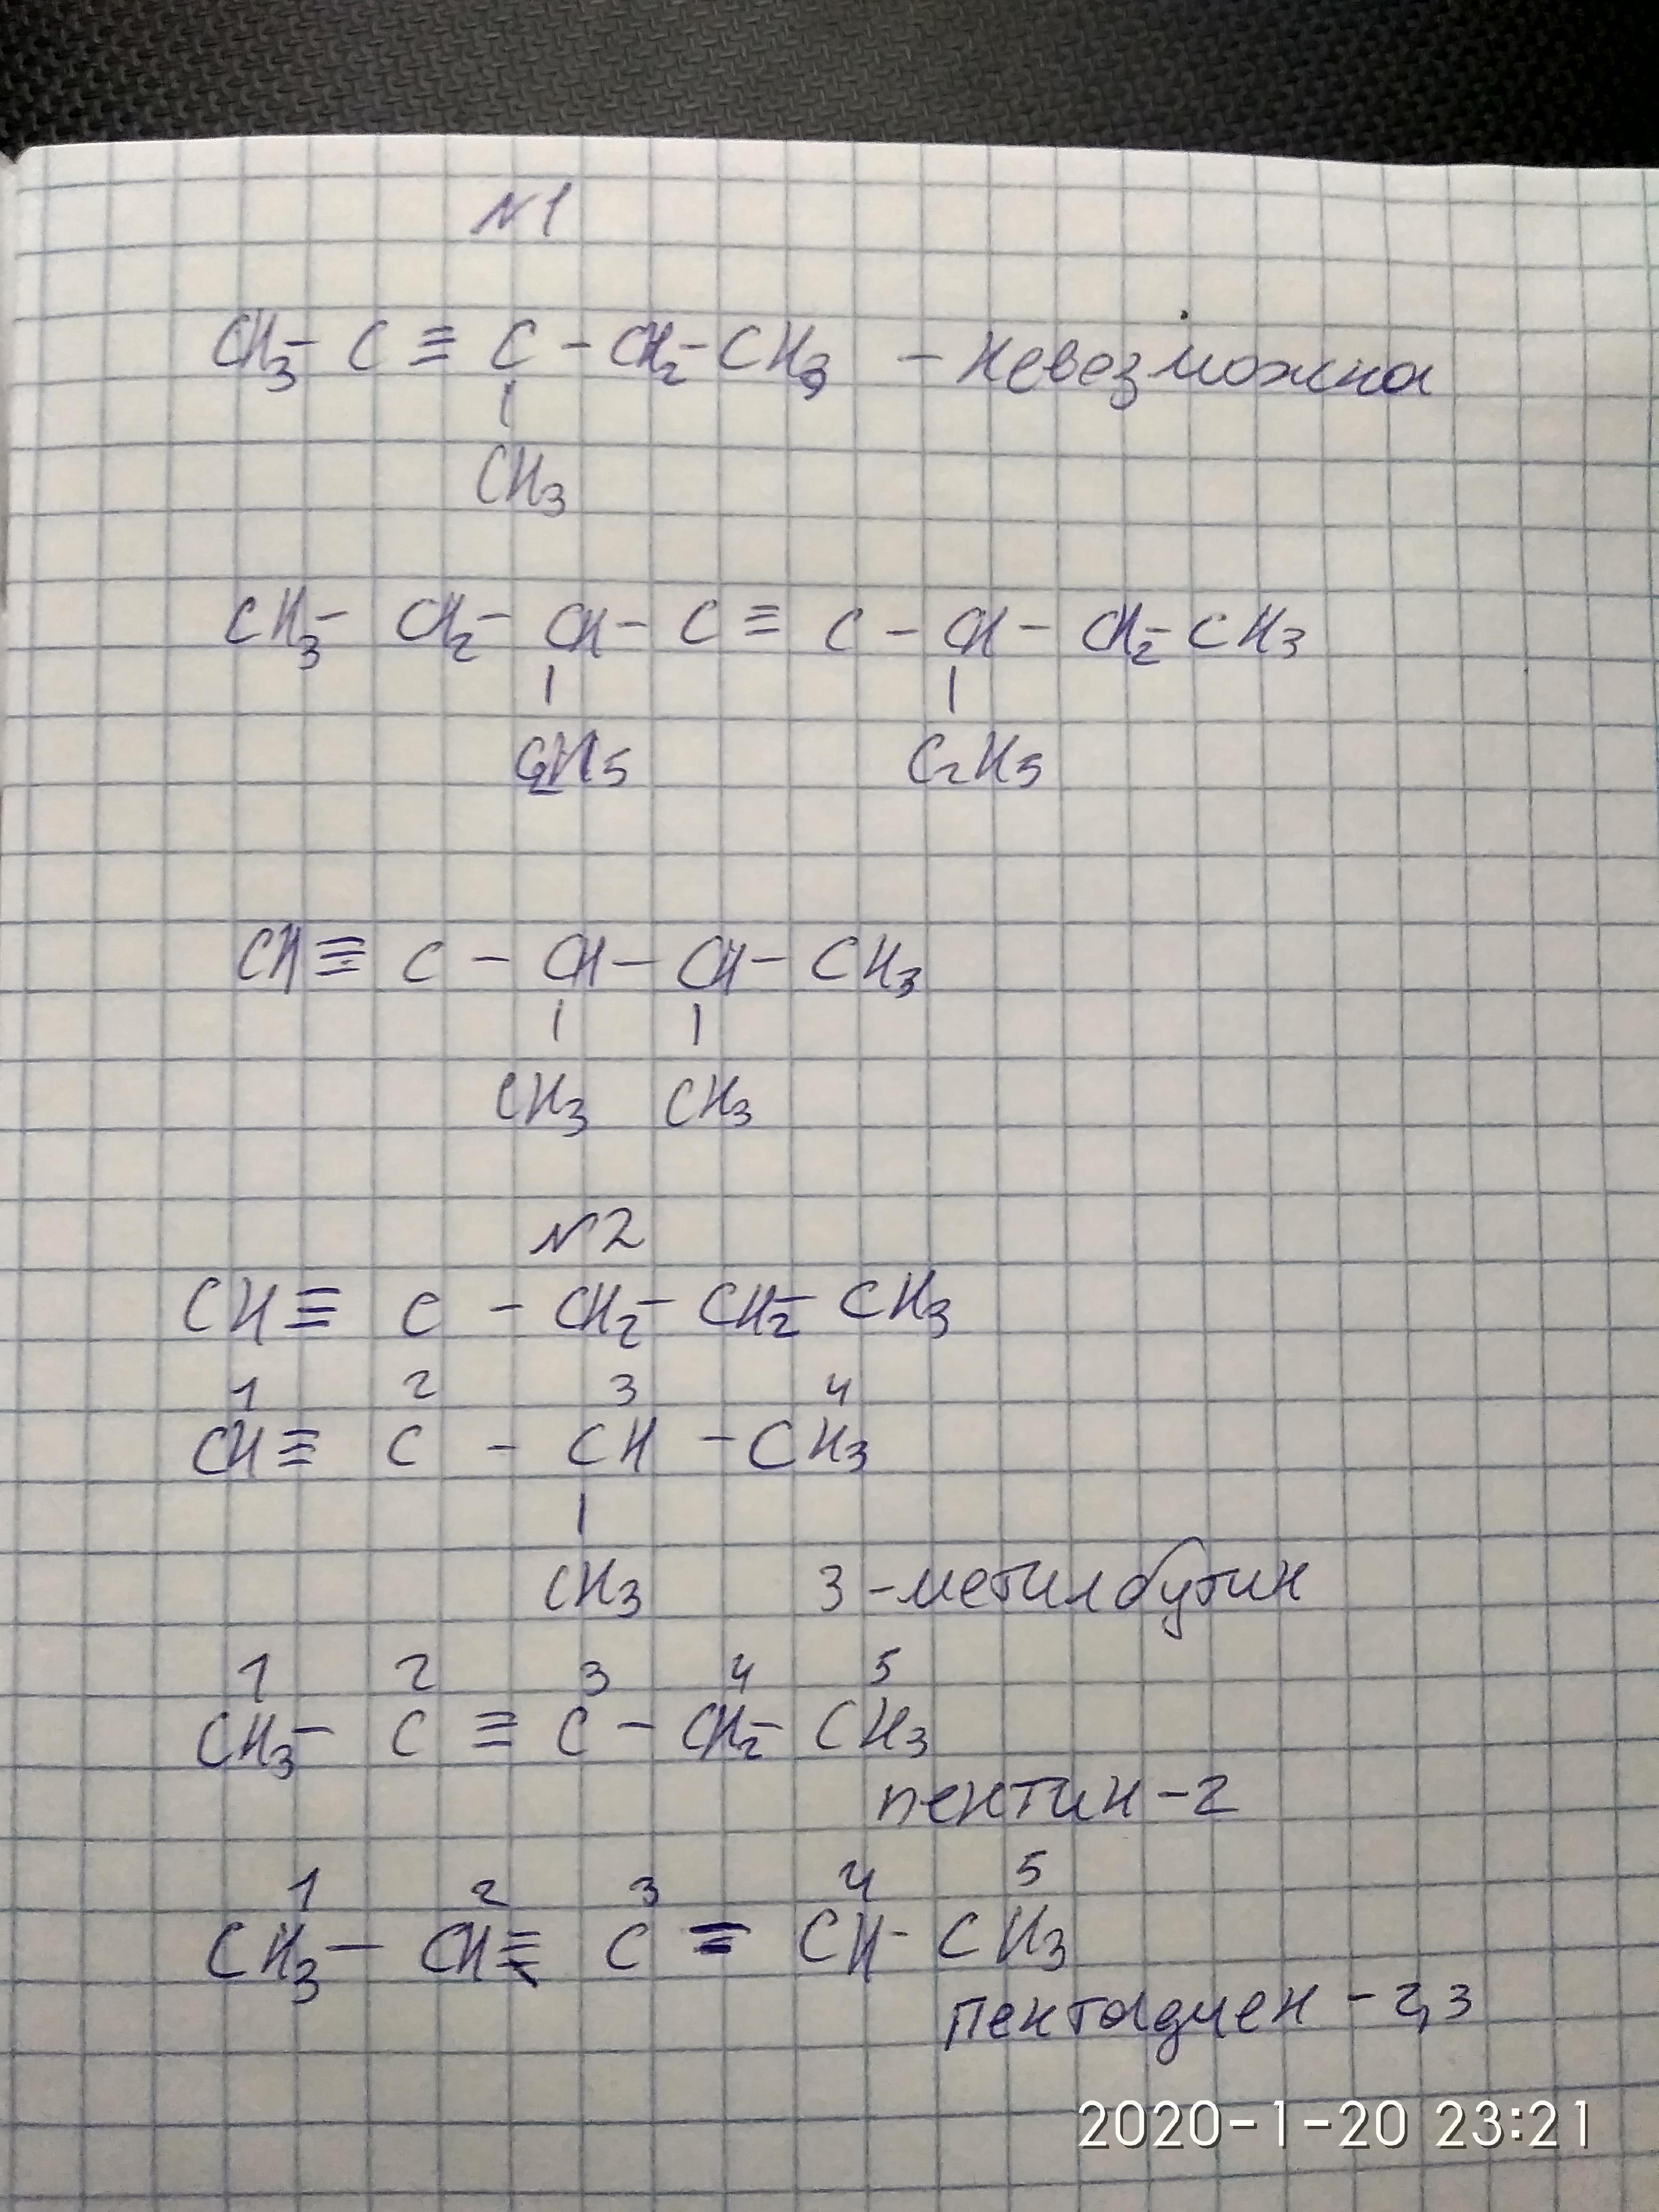 №1
CH3- C ≡ C - CH2- CH3 - невезможна
CH3
CH3- CH2- CH - C ≡ C - CH - CH2- CH3
C2H5 C2H5
CH ≡ C - CH - CH - CH3
CH3 CH3
№2
CH ≡ C - CH2- CH2- CH3
1 2 3 4
CH ≡ C - CH - CH3
CH3 3-метилбутин
1 2 3 4 5
CH3- C ≡ C - CH2- CH3
пентин-2
1 2 3 4 5
CH3- CH = C = CH - CH3
пентадиен-2,3
2020-1-20 23:21